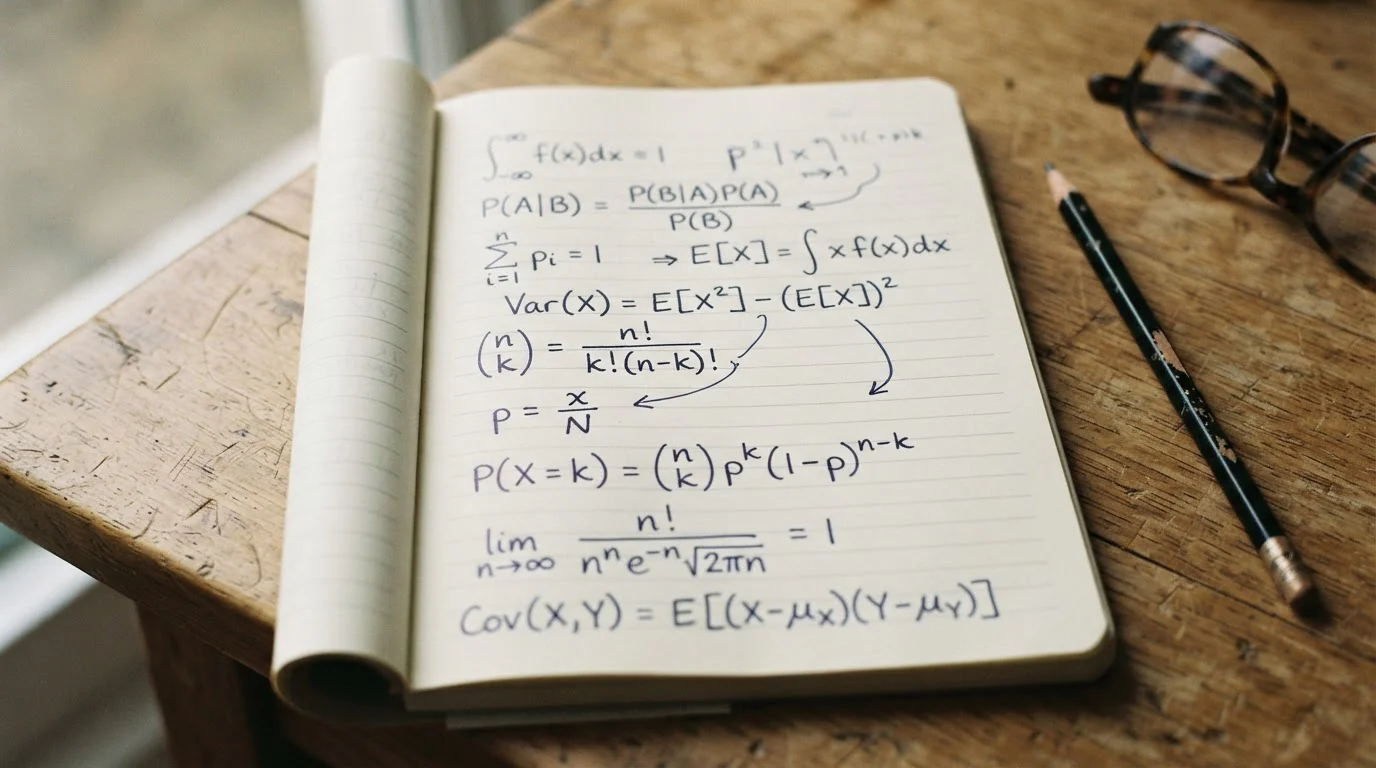 ∫_{-∞}^{∞} f(x)dx = 1
P(A|B) = P(B|A)P(A) / P(B)
∑_{i=1}^{n} pi = 1 ⇒ E[X] = ∫ x f(x) dx
Var(X) = E[X²] − (E[X])²
(n k) = n! / k!(n−k)!
p = x/N
P(X = k) = (n k) p^k (1−p)^{n−k}
lim_{n→∞} n! / n^n e^{−n} √2πn = 1
Cov(X,Y) = E[(X−μ_X)(Y−μ_Y)]